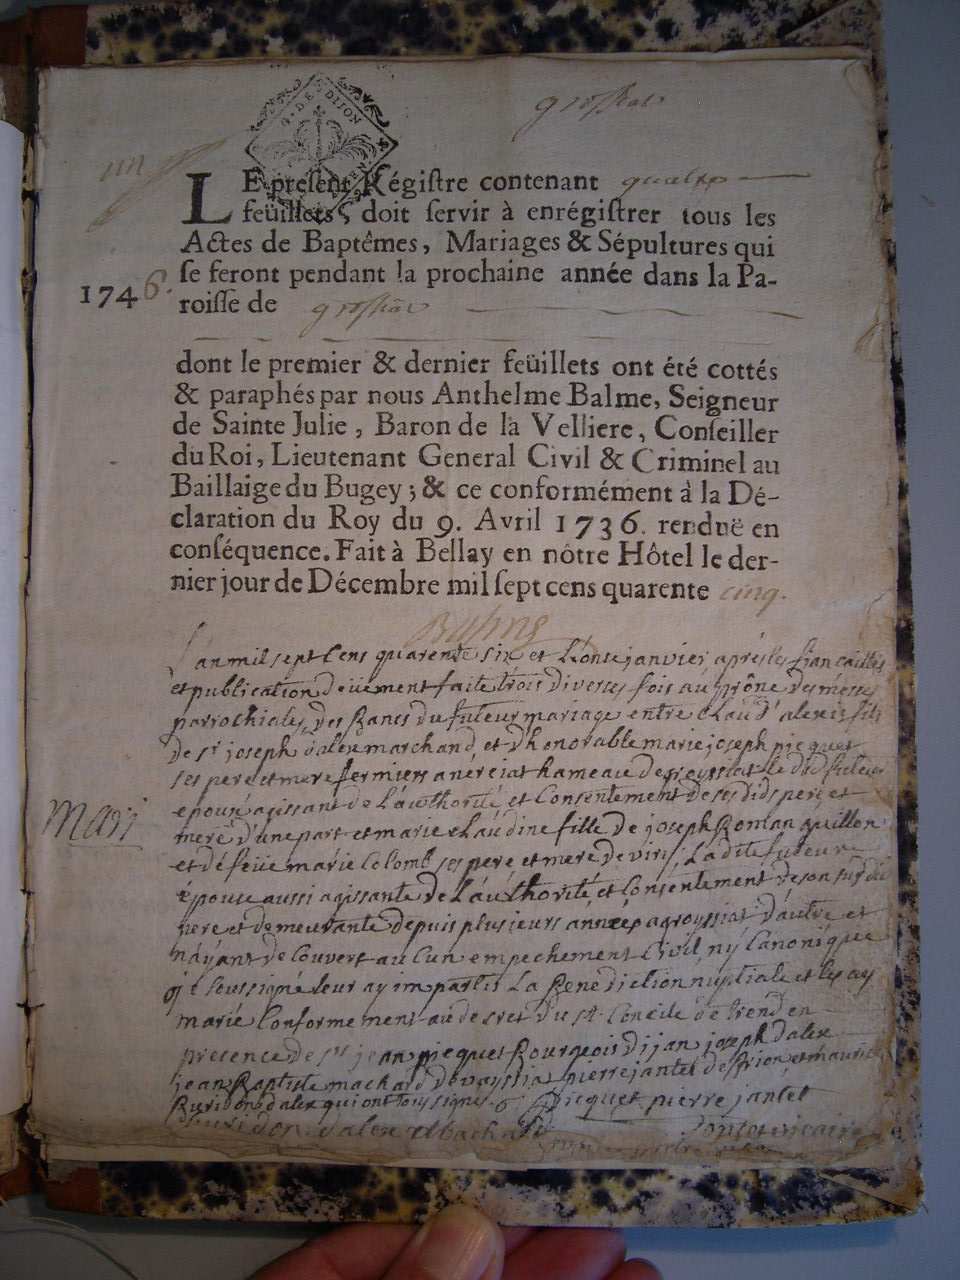 G. DE DIJON
LE present Régistre contenant
feüillets, doit servir à enrégistrer tous les
Actes de Baptêmes, Mariages & Sépultures qui
se feront pendant la prochaine année dans la Pa-
1746.
roisse de
dont le premier & dernier feüillets ont été cottés
& paraphés par nous Anthelme Balme, Seigneur
de Sainte Julie, Baron de la Velliere, Conseiller
du Roi, Lieutenant General Civil & Criminel au
Baillaige du Bugey; & ce conformément à la Dé-
claration du Roy du 9. Avril 1736. renduë en
conséquence. Fait à Bellay en nôtre Hôtel le der-
nier jour de Décembre mil sept cens quarente cinq.
L'an mil sept Cens quarente six et L'onse janvier, après les fiancailles
et publication deüement faite trois diverses fois au prône des messes
parrochiales, des Bancs du futeur mariage entre Claud' alex fils
de sr joseph dalex marchand et d'honorable marie joseph picquet
ses pere et mere fermiers a hameau de le dud futeur
epoux agissant de L'authorité et Consentement de ses dids pere et
Mari
mere d'une part et marie Claudine fille de joseph Roman
et defeüe marie Colomb ses pere et mere de Ladite futeure
épouse aussi agissante de L'authorité et Consentement de son susdit
pere et demeurante depuis plusieurs d'autre et
n'ayant decouvert aucun empechement Civil ny Canonique
je soussigné leur ay imparti La Benediction nuptiale et les ay
marié Conformement au decret du st Concile de trend en
presence de sr jean picquet Bourgeois joseph dalex
jean Baptiste machard pierre jantet et maurice
dalex qui ont sous signes. picquet pierre jantet
dalex Machard